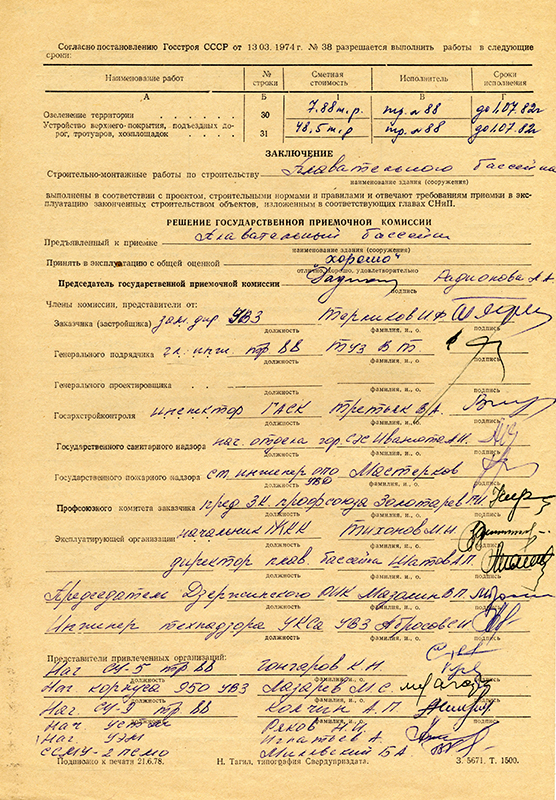 Согласно постановлению Госстроя СССР от 13 03. 1974 г. № 38 разрешается выполнить работы в следующие
сроки:
Наименование работ № строки Сметная стоимость Исполнитель Сроки исполнения
А Б 1 В Г
Озеленение территории 30 7.88 т.р. тр. №88 до 1.07.82г
Устройство верхнего покрытия, подъездных до-
рог, тротуаров, хозплощадок 31 48,5 т.р тр. №88 до 1.07.82г
ЗАКЛЮЧЕНИЕ
Строительно-монтажные работы по строительству Плавательного бассейна
наименование здания (сооружения)
выполнены в соответствии с проектом, строительными нормами и правилами и отвечают требованиям приемки в экс-
плуатацию законченных строительством объектов, изложенным в соответствующих главах СНиП.
РЕШЕНИЕ ГОСУДАРСТВЕННОЙ ПРИЕМОЧНОЙ КОМИССИИ
Предъявленный к приемке Плавательный бассейн
наименование здания (сооружения)
Принять в эксплуатацию с общей оценкой хорошо"
отлично, хорошо, удовлетворительно
Председатель государственной приемочной комиссии Радионова А.А.
подпись
Члены комиссии, представители от:
Заказчика (застройщика) зам. дир УВЗ
должность фамилия, и., о. подпись
Генерального подрядчика гл. инж. тр 88 Туз В Т
должность фамилия, и., о. подпись
Генерального проектировщика
должность фамилия, и., о. подпись
Госархстройконтроля инспектор ГАСК Третьяк В.А.
должность фамилия, и., о. подпись
Государственного санитарного надзора нач. отдела гор СЭС
должность фамилия, и., о. подпись
Государственного пожарного надзора ст. инженер опо Мастерков
должность УВД фамилия, и., о. подпись
Профсоюзного комитета заказчика пред ЗК профсоюза Золотарев
должность фамилия, и., о. подпись
Эксплуатирующей организации начальник ЖКК Тихонов М.И.
должность фамилия, и., о. подпись
директор плав. бассейна Шатов А.П.
должность фамилия, и., о. подпись
Председатель Дзержинского РИК Мазалин В.П.
должность фамилия, и., о. подпись
Инженер технадзора УКСа УВЗ Абросов
должность фамилия, и., о. подпись
Представители привлеченных организаций:
Нач СУ-5 тр 88 Гончаров К.Н.
должность
Нач корпуса 950 УВЗ Лазарев М.С.
Нач СУ-3 тр 88 Колчин А.П
должность фамилия, и., о. подпись
Нач. Ряков Н.И.
Нач УЭМ Игнатьев А.
ССМУ-2 ПСМО Милевский Б А.
Подписано к печати 21.6.78. Н. Тагил, типография Свердуприздата. З. 5671. Т. 1500.